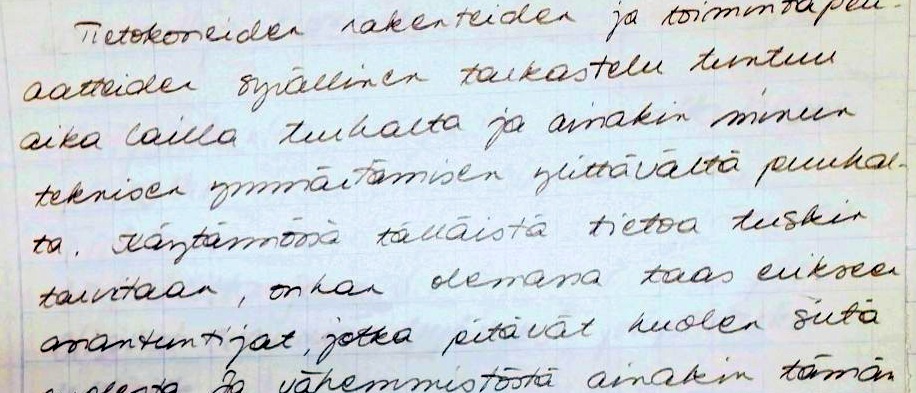 Tietokoneiden rakenteiden ja toimintaperi-
aatteiden syvällinen tarkastelu tuntuu
aika lailla turhalta ja ainakin minun
teknisen ymmärtämisen ylittävältä puuhal-
ta. Käytännössä tällaistä tietoa tuskin
tarvitaan, onhan olemassa taas erikseen
asiantuntijat, jotka pitävät huolen siitä
puolesta. Ja vähemmistöstä ainakin tämän